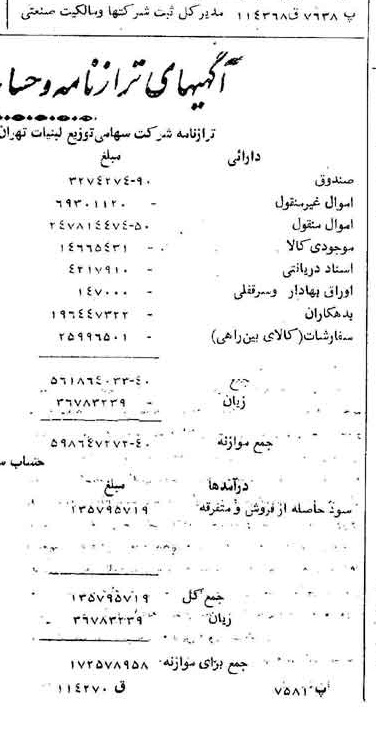 پ ۷۶۳۸ ق ۱۱۴۳۶۸ مدیر کل ثبت شرکتها ومالکیت صنعتی
آگهیهای ترازنامه و
ترازنامه شرکت سهامی توزیع لبنیات تهران
دارائی مبلغ
صندوق ۳۲۷۴۲۷۴-۹۰
اموال غیرمنقول ۶۹۳۰۱۱۲۰ -
اموال منقول ۲۴۷۸۱۴۴۷۴-۵۰
موجودی کالا ۱۴۶۶۵۴۳۱ -
اسناد دریافتی ۴۲۱۷۹۱۰ -
اوراق بهادار وسرقفلی ۱۴۷۰۰۰ -
بدهکاران ۱۹۶۴۴۷۳۲۲ -
سفارشات (کالای بین‌راهی) ۲۵۹۹۶۵۰۱ -
جمع ۵۶۱۸۶۴۰۳۳-۴۰
زیان ۳۶۷۸۳۲۳۹ -
جمع موازنه ۵۹۸۶۴۷۲۷۲-۴۰
حساب
درآمدها مبلغ
سود حاصله از فروش و متفرقه ۱۳۵۷۹۵۷۱۹
جمع کل ۱۳۵۷۹۵۷۱۹
زیان ۳۶۷۸۳۲۳۹
جمع برای موازنه ۱۷۲۵۷۸۹۵۸
پ ۷۵۸۱ ق ۱۱۴۲۷۰